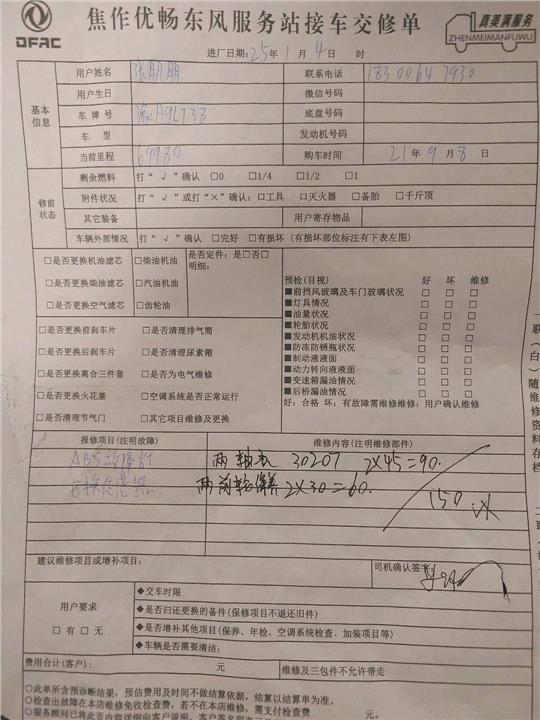 DFAC
焦作优畅东风服务站接车交修单
真美满服务
ZHENMEIMANFUWU
进厂日期:25年1月4日 时
基本信息
用户姓名 张朋朋 联系电话 18300647930
用户生日 微信号码
车牌号 豫 底盘号码
车型 发动机号码
当前里程 69980 购车时间 21年9月8日
修前状态
剩余燃料 打“√”确认 □0 □1/4 □1/2 □1
附件状况 打“√”或打“×”确认:□工具 □灭火器 □备胎 □千斤顶
其它装备 用户寄存物品
车辆外部情况 打“√”确认 □完好 □有损坏(有损坏部位标注有下表左图)
□是否更换机油滤芯 □柴油机油 是否定件:是□否□
明细:
□是否更换柴油滤芯 □汽油机油
□是否更换空气滤芯 □齿轮油
预检(目视) 好 坏 维修
■前挡风玻璃及车门玻璃状况 □ □ □
■灯具情况 □ □ □
■油量状况 □ □ □
■轮胎状况 □ □ □
■发动机机油状况 □ □ □
■防冻防锈瓶状况 □ □ □
■制动液液面 □ □ □
■动力转向液液面 □ □ □
■变速箱漏油情况 □ □ □
■后桥漏油情况 □ □ □
好:合格 坏:有故障需维修维修:用户确认维修
□是否更换前刹车片 □是否清理排气筒
□是否更换后刹车片 □是否清理尿素箱
□是否更换离合三件套 □是否为电气维修
□是否更换火花塞 □空调系统是否正常运行
□是否清理节气门 □其它项目维修及更换
报修项目(注明故障) 维修内容(注明维修部件)
ABS故障灯 两轴承 30207 2X45=90.
两前轮 2X30=60.
150
建议维修项目或增补项目: 司机确认签字:
用户要求
□有□无
◆交车时限
◆是否归还更换的备件(保修项目不退还旧件)
◆是否增补其他项目(保养、年检、空调系统检查、加装项目等)
◆车辆是否需要清洁:
费用合计(客户): 元 维修及三包件不允许带走
○此单所含预诊断结果,预估费用及时间不做结算依据,结算以结算单为准。
○检查出故障在本店维修免收检查费,若不在本店维修,需支付检查费 元。
○服务顾问已将此页内容详细向客户说明,客户签名
一联(白)随维修资料存档